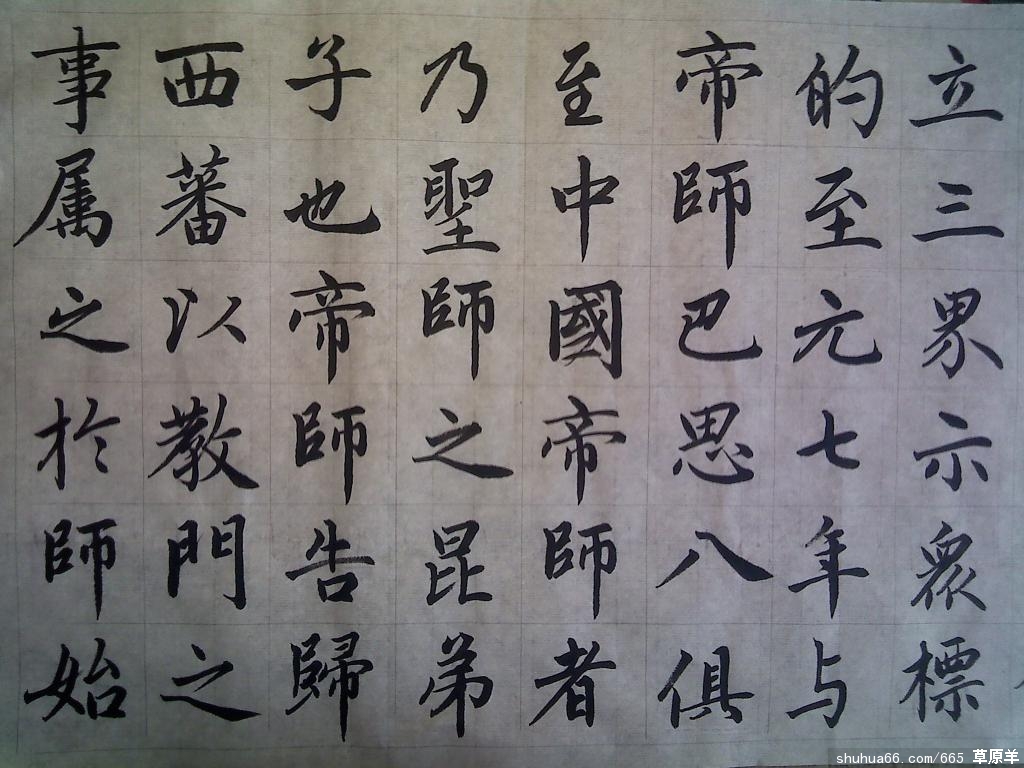 立三界示眾標
的至元七年与
帝師巴思八俱
至中國帝師者
乃聖師之昆弟
子也帝師告歸
西蕃以教門之
事属之於師始
shuhua66.com/665 草原羊